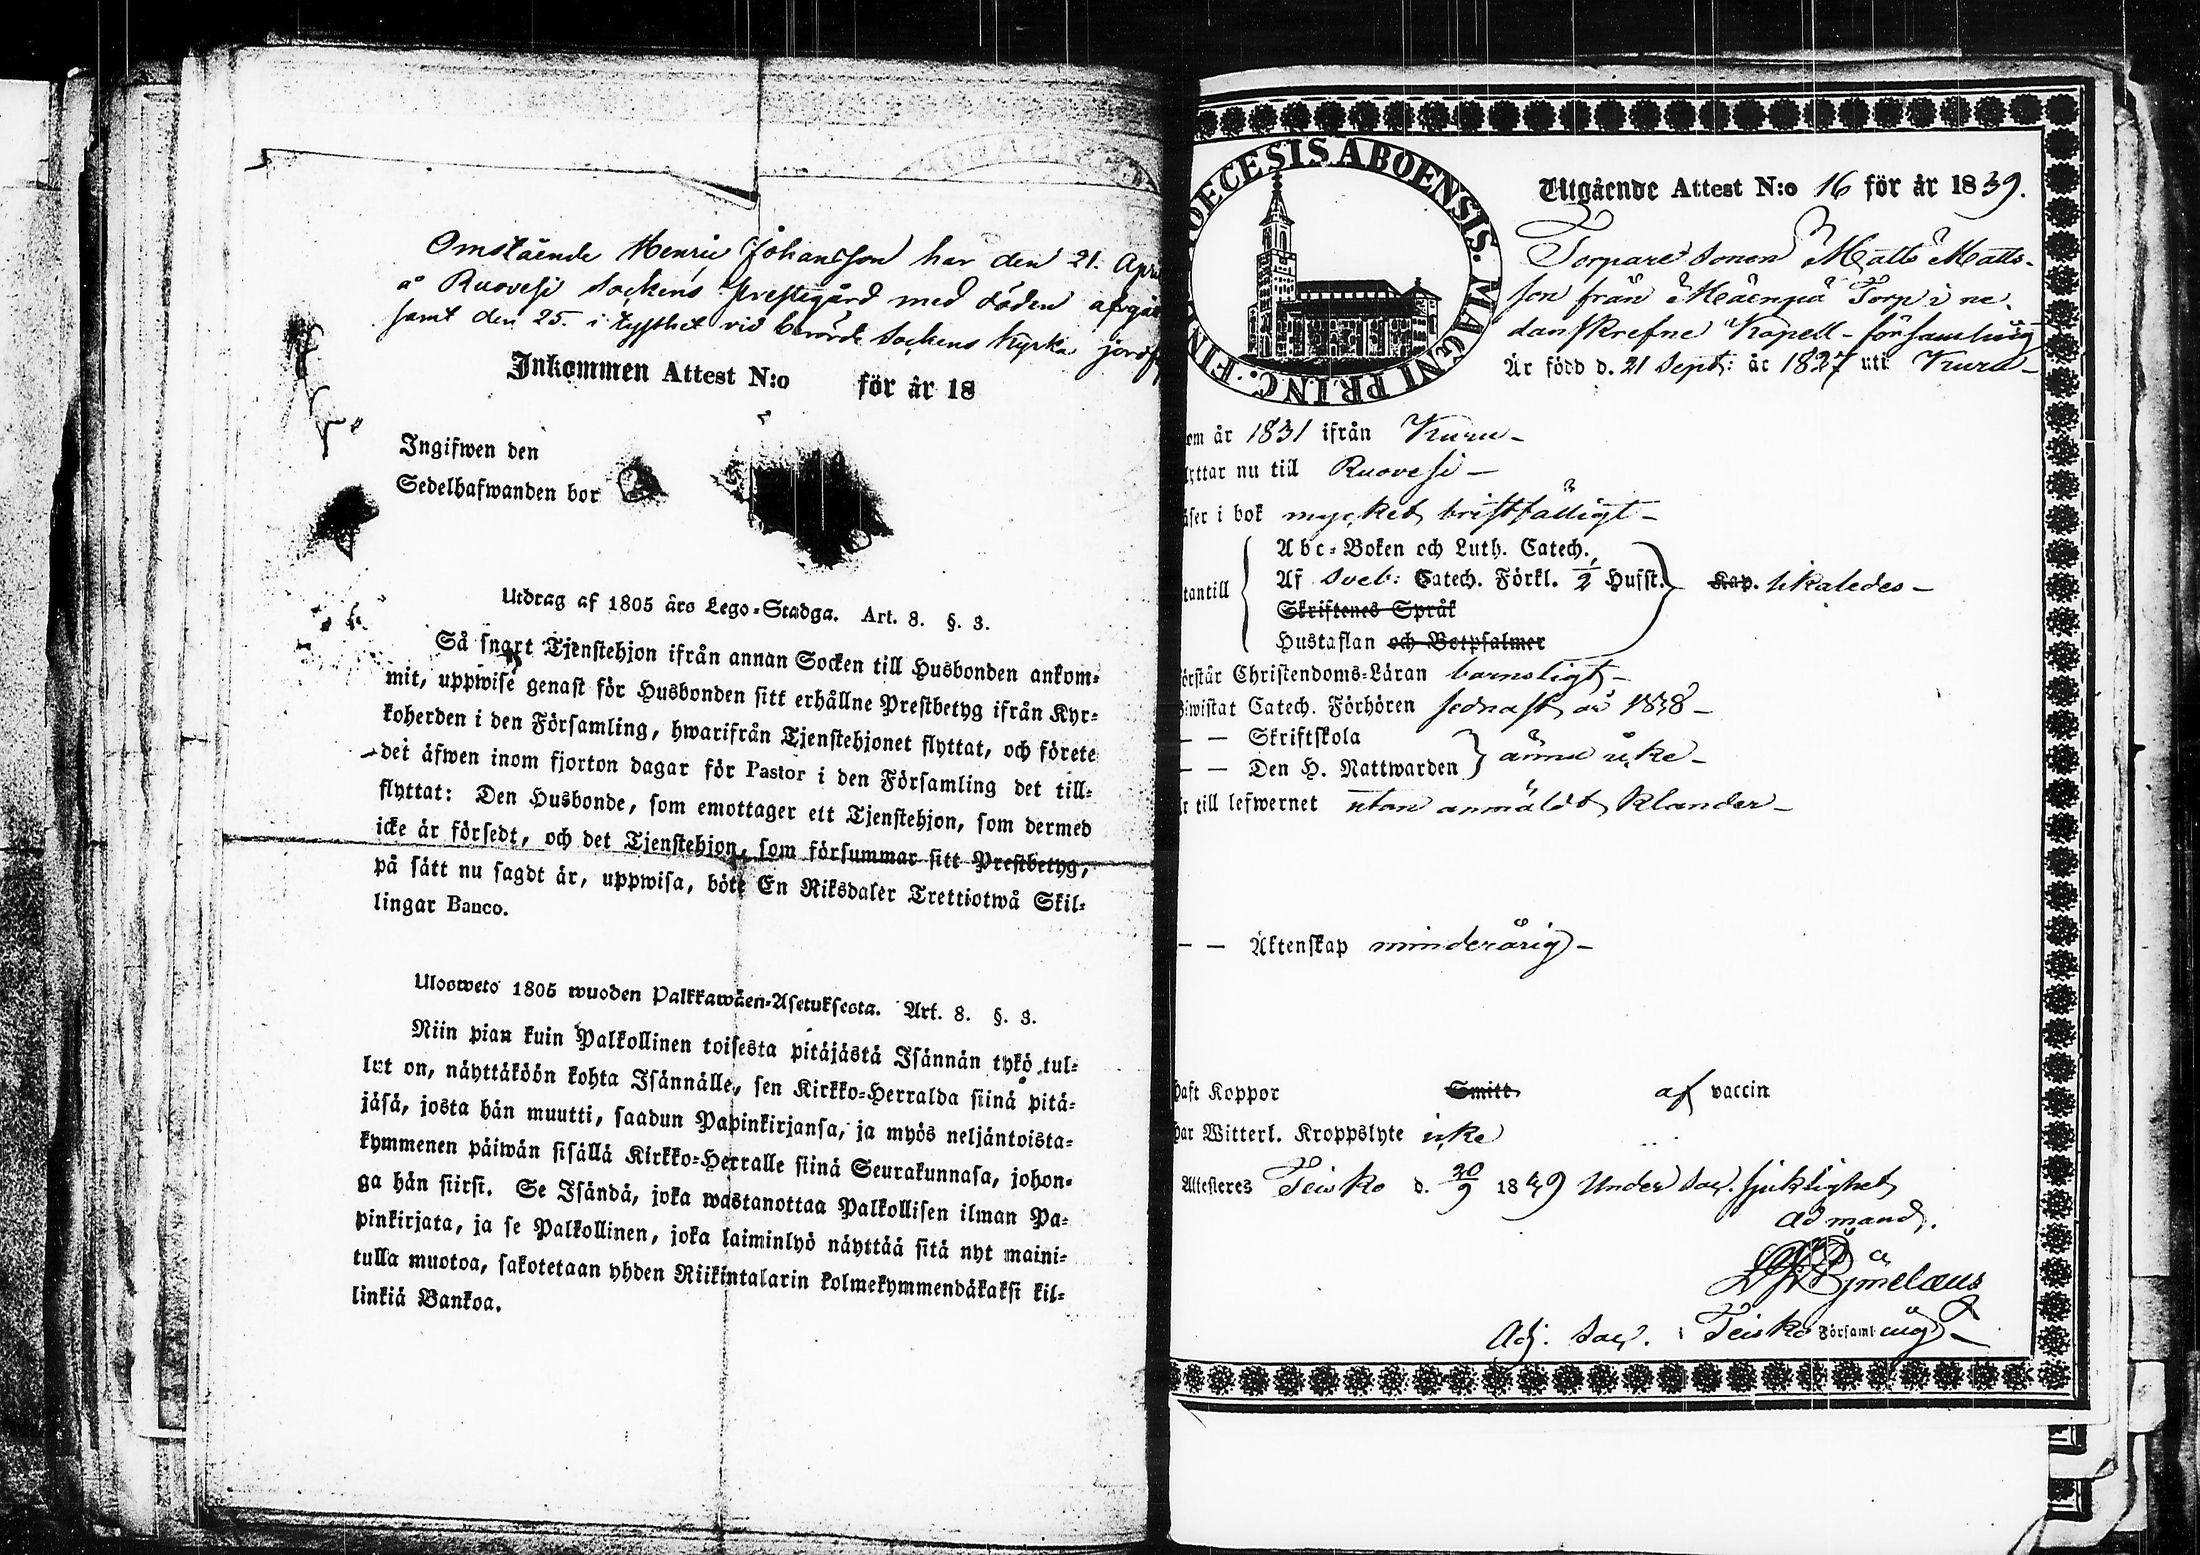 Omstående Henric Johansson har den 21. Apr
å Ruovesi Sockens Prestegård med döden afgåt
samt den 25. i tysthet vid berörde Sockens Kyrka jordf
Inkommen Attest N:o för år 18
Ingifwen den
Sedelhafwanden bor
Utdrag af 1805 års Lego-Stadga. Art. 8. §. 3.
Så snart Tjenstehjon ifrån annan Socken till Husbonden ankom-
mit, uppwise genast för Husbonden sitt erhållne Prestbetyg ifrån Kyr-
koherden i den Församling, hwarifrån Tjenstehjonet flyttat, och förete
det äfwen inom fjorton dagar för Pastor i den Församling det till-
flyttat: Den Husbonde, som emottager ett Tjenstehjon, som dermed
icke är försedt, och det Tjenstehjon, som försummar sitt Prestbetyg,
på sätt nu sagdt är, uppwisa, böte En Riksdaler Trettiotwå Skil-
lingar Banco.
Uloswetö 1805 wuoden Palkkawäen-Asetuksesta. Art. 8. §. 3.
Niin pian kuin Palkollinen toisesta pitäjästä Isännän tykö tul-
lut on, näyttäköön kohta Isännälle, sen Kirkko-Herralda siinä pitä-
jäsä, josta hän muutti, saadun Papinkirjansa, ja myös neljäntoista-
kymmenen päiwän sisällä Kirkko-Herralle siinä Seurakunnasa, johon-
ga hän siirsi. Se Isändä, joka wastanottaa Palkollisen ilman Pa-
pinkirjata, ja se Palkollinen, joka laiminlyö näyttää sitä nyt maini-
tulla muotoa, sakotetaan yhden Riikintalarin kolmekymmendäkaksi kil-
linkiä Bankoa.
DIOECESIS ABOENSIS. MAGNI PRINC. FIN
Utgående Attest N:o 16 för år 1839.
Torpare Sonen Matts Matts-
son från Mäenpä Torp i ne
danskrefne Kapell-församling
Är född d. 21 Sept: år 1827 uti Kuru-
om år 1831 ifrån Kuru-
lyttar nu till Ruovesi-
äser i bok mycket bristfälligt-
Abc-Boken och Luth. Catech.
tantill Af Sveb: Catech. Förkl. 1/2 Hufst. Kap. likaledes-
Skriftenes Språk
Hustaflan och Botpsalmer
örstår Christendoms-Läran barnsligt-
iwistat Catech. Förhören sednast år 1838-
— — Skriftskola
— — Den H. Nattwarden ännu icke-
r till lefwernet utan anmäldt klander-
— — Äktenskap minderårig-
haft Koppor Smitt af vaccin
har Witterl. Kroppslyte icke
Attesteres Teisko d. 20/9 1839 Under Sac. sjuklighet
ad mand.
Adj. Sac. i Teisko Församling-